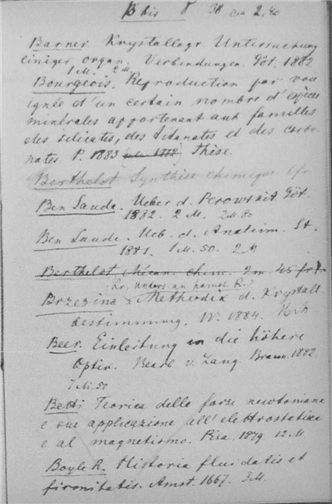 B bis 8. 38 2.40
Barner. Krystallogr. Untersuchung
einiger organ. Verbindungen. Göt. 1882
1 M.
Bourgeois. Reproduction par voie
ignée d'un certain nombre d'espèces
minérales appartenant aux familles
des silicates, des titanates et des carbo
nates. P. 1883 Thèse.
Berthelot Synthèse chimique
Ben Saude. Ueber d. Perowskit Göt.
1882. 2 M.
Ben Saude. Ueb. d. Analcim. St.
1881. 1 M. 50. 2 M
Berthelot chim.
Brzezina Methodik d. Krystall
bestimmung. W. 1884.
Beer. Einleitung in die höhere
Optik. Bearb v. Lang Braun. 1882.
7 M. 50
Betti Teorica delle forze newtoniane
e sue applicazione all' elettrostatica
e al magnetismo. Pisa. 1879 12 M
Boyle R. Historia fluiditatis et
firmitatis. Amst. 1667. 3 M.